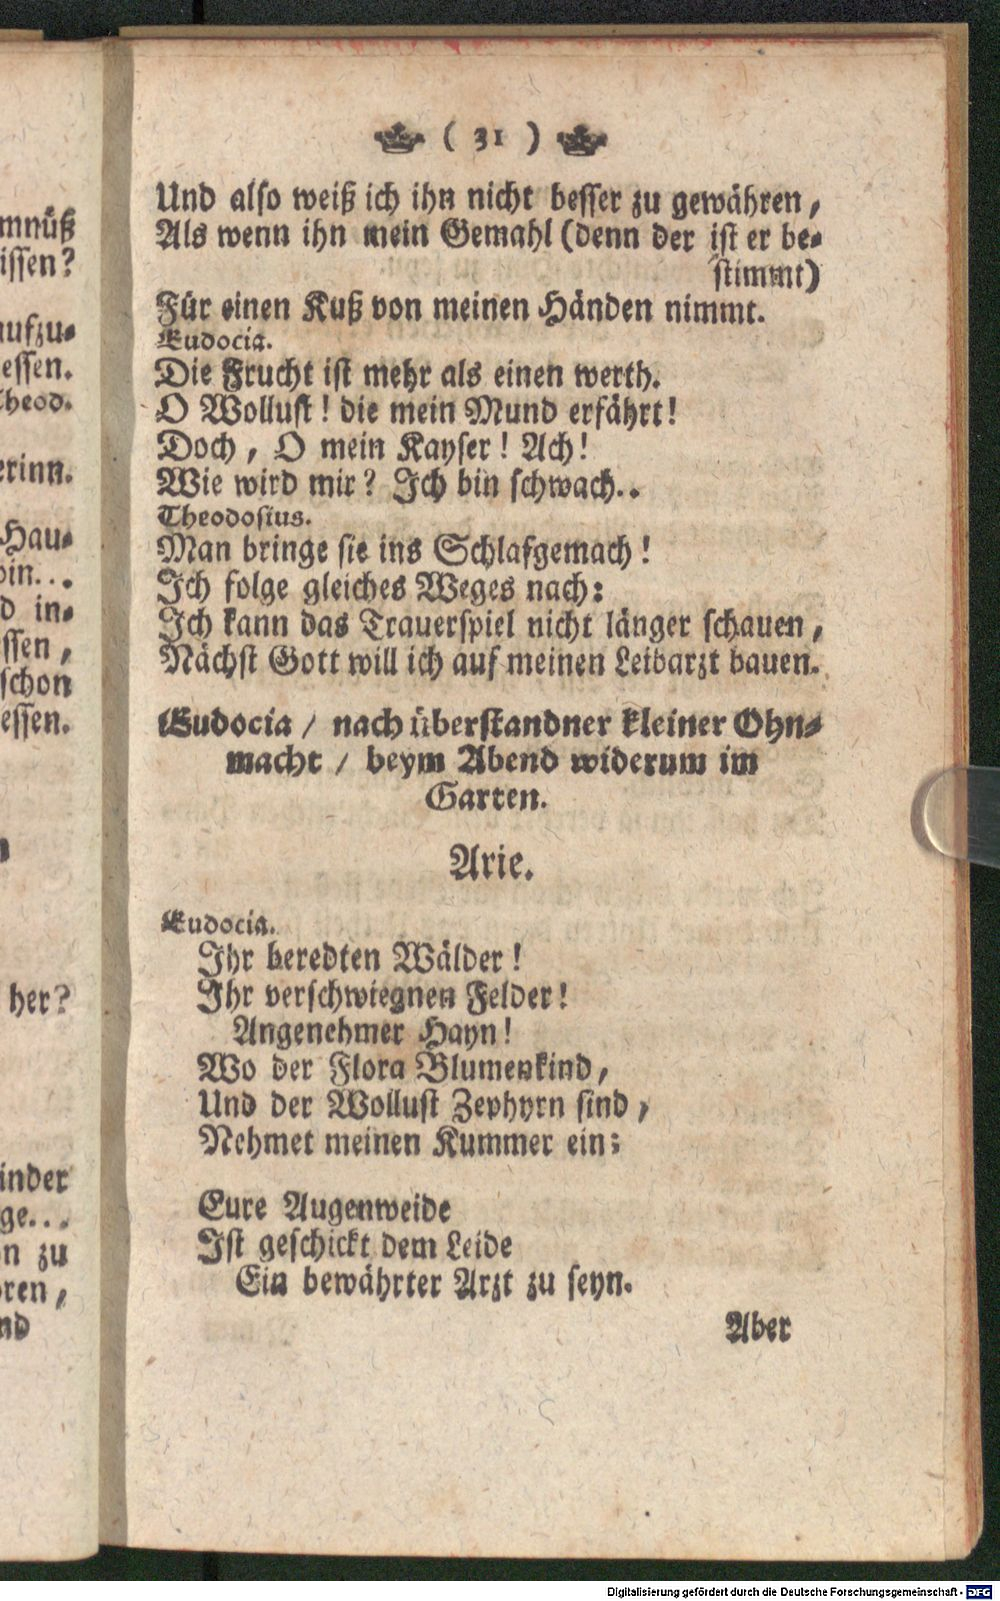 ( 31 )
Und also weiß ich ihn nicht besser zu gewähren,
Als wenn ihn mein Gemahl (denn der ist er be-
stimmt)
Für einen Kuß von meinen Händen nimmt.
Eudocia.
Die Frucht ist mehr als einen werth.
O Wollust! die mein Mund erfährt!
Doch, O mein Kayser! Ach!
Wie wird mir? Ich bin schwach..
Theodosius.
Man bringe sie ins Schlafgemach!
Ich folge gleiches Weges nach:
Ich kann das Trauerspiel nicht länger schauen,
Nächst Gott will ich auf meinen Leibarzt bauen.
Eudocia / nach überstandner kleiner Ohn-
macht / beym Abend widerum im
Garten.
Arie.
Eudocia.
Ihr beredten Wälder!
Ihr verschwiegnen Felder!
Angenehmer Hayn!
Wo der Flora Blumenkind,
Und der Wollust Zephyrn sind,
Nehmet meinen Kummer ein;
Eure Augenweide
Ist geschickt dem Leide
Ein bewährter Arzt zu seyn.
Aber
mnüß
issen?
aufzu-
essen.
Theod.
erinn.
Hau-
bin...
d in-
essen,
schon
essen.
her?
inder
ge...
n zu
oren,
nd
Digitalisierung gefördert durch die Deutsche Forschungsgemeinschaft - DFG